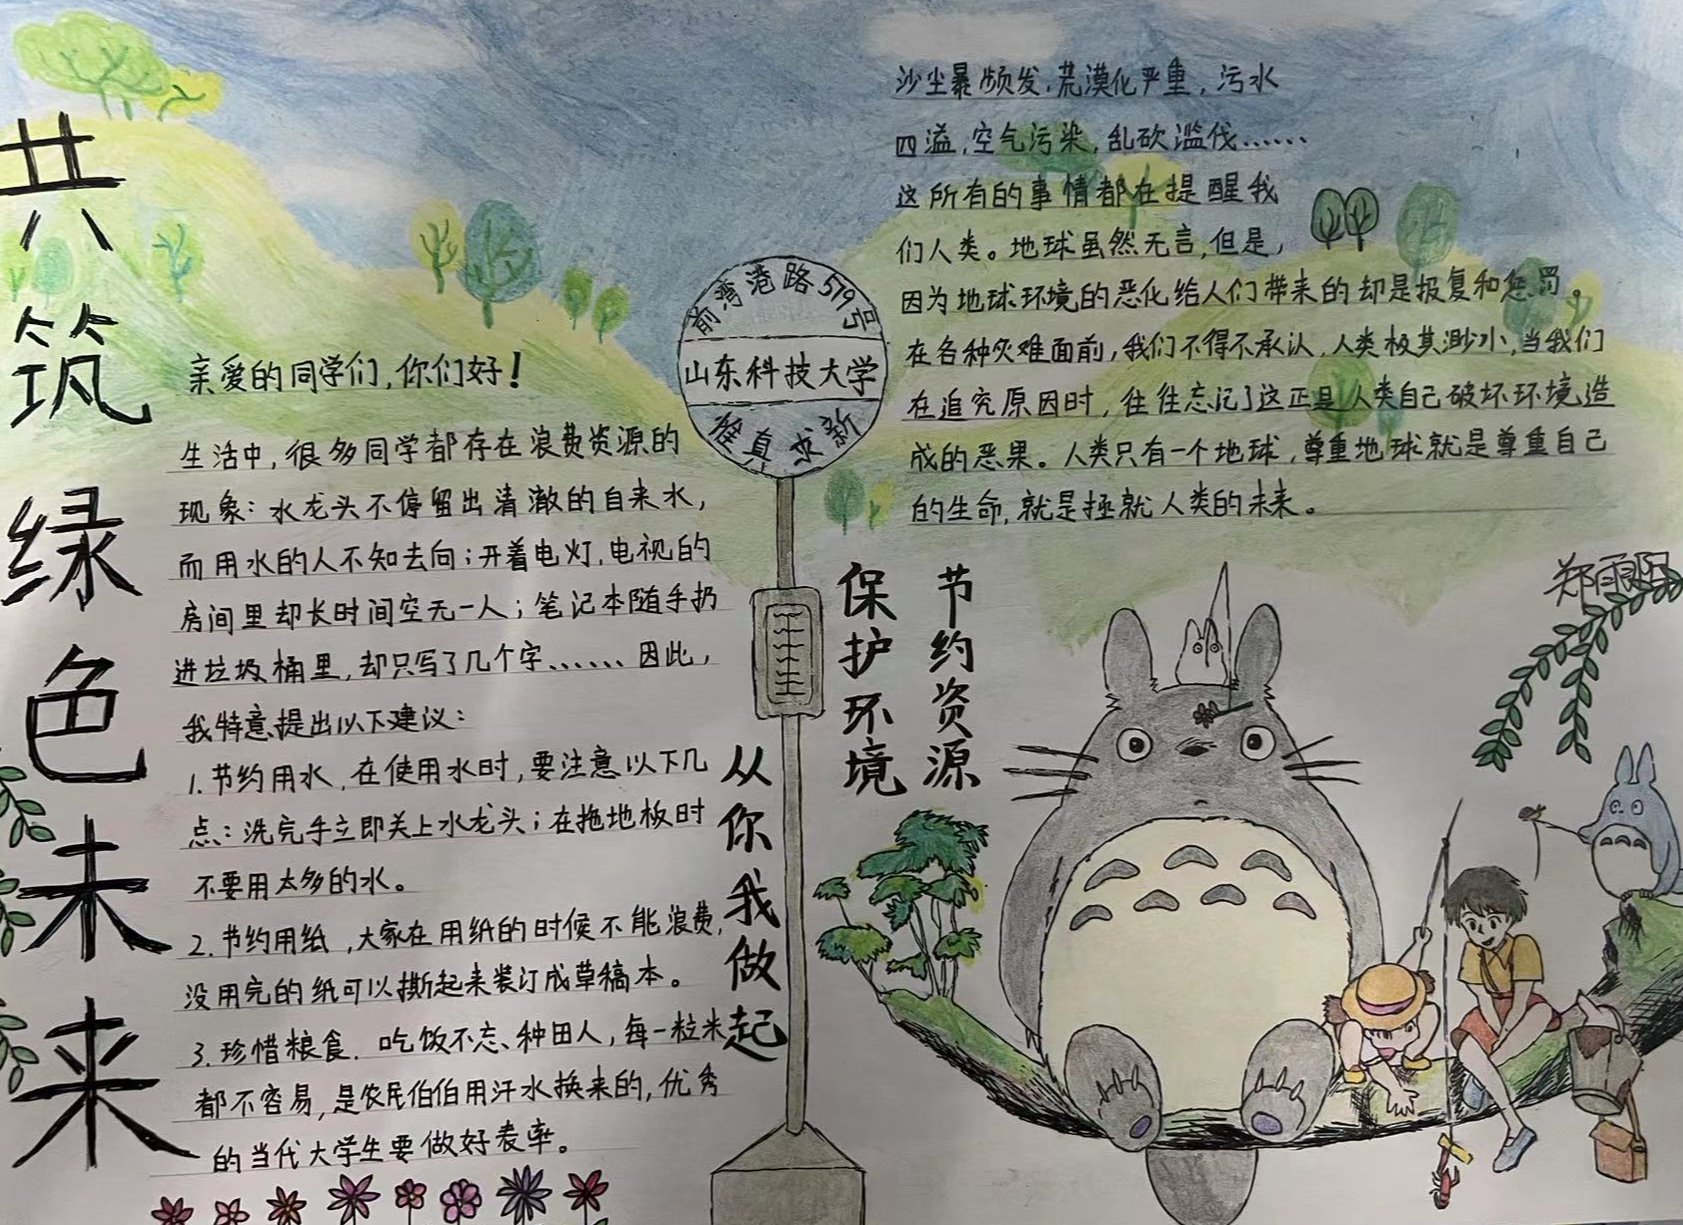 共筑绿色未来
亲爱的同学们,你们好!
生活中,很多同学都存在浪费资源的
现象:水龙头不停留出清澈的自来水,
而用水的人不知去向;开着电灯,电视的
房间里却长时间空无一人;笔记本随手扔
进垃圾桶里,却只写了几个字......因此,
我特意提出以下建议:
1.节约用水,在使用水时,要注意以下几
点:洗完手立即关上水龙头;在拖地板时
不要用太多的水。
2.节约用纸,大家在用纸的时候不能浪费,
没用完的纸可以撕起来装订成草稿本。
3.珍惜粮食.吃饭不忘、种田人,每一粒米
都不容易,是农民伯伯用汗水换来的,优秀
的当代大学生要做好表率。
前湾港路579号
山东科技大学
惟真求新
从你我做起
保护环境
节约资源
沙尘暴频发,荒漠化严重,污水
四溢,空气污染,乱砍滥伐......
这所有的事情都在提醒我
们人类。地球虽然无言,但是,
因为地球环境的恶化给人们带来的却是报复和惩罚。
在各种灾难面前,我们不得不承认,人类极其渺小,当我们
在追究原因时,往往忘记了这正是人类自己破坏环境造
成的恶果。人类只有一个地球,尊重地球就是尊重自己
的生命,就是拯就人类的未来。
郑雨